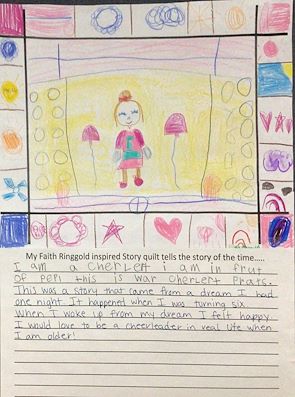 My Faith Ringgold inspired Story quilt tells the story of the time.....
I am a cherLeft I am in frut
of PePl this is war cherLert Phats.
This was a story that came from a dream I had
one night. It happened when I was turning six.
When I woke up from my dream I felt happy.
I would love to be a cheerleader in real life when
I am older!